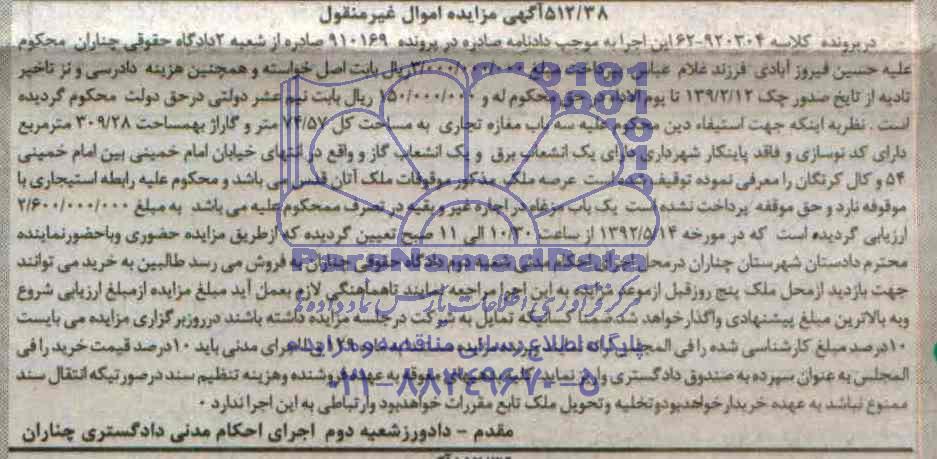 ۵۱۲/۳۸آگهی مزایده اموال غیرمنقول
درپرونده کلاسه ۹۲۰۳۰۴-۶۲ این اجرا به موجب دادنامه صادره در پرونده ۹۱۰۱۶۹ صادره از شعبه ۲دادگاه حقوقی چناران محکوم
علیه حسین فیروز آبادی فرزند غلام عباس بپرداخت مبلغ ریال بابت اصل خواسته و همچنین هزینه دادرسی و نز تاخیر
تادیه از تایخ صدور چک ۱۳۹۲/۲/۱۲ تا یوم الاداء در حق محکوم له و ۱۵۰/۰۰۰/۰۰۰ ریال بابت نیم عشر دولتی درحق دولت محکوم گردیده
است . نظربه اینکه جهت استیفاء دین محکوم علیه سه باب مغازه تجاری به مساحت کل ۷۴/۵۷ متر و گاراژ بهمساحت ۳۰۹/۲۸ مترمربع
دارای کد نوسازی و فاقد پاینکار شهرداری دارای یک انشعاب برق و یک انشعاب گاز و واقع در انتهای خیابان امام خمینی بین امام خمینی
۵۴ و کال کرتگان را معرفی نموده توقیف شده است عرصه ملک مذکور موقوفات ملک آتان قدس می باشد و محکوم علیه رابطه استیجاری با
موقوفه نارد و حق موقفه پرداخت نشده است یک باب مزغاه در اجاره غیر و بقیه در تصرف ممحکوم علیه می باشد به مبلغ ۲/۶۰۰/۰۰۰/۰۰۰
ارزیابی گردیده است که در مورخه ۱۳۹۲/۵/۱۴ از ساعت ۱۰/۳۰ الی ۱۱ صبح تعیین گردیده که ازطریق مزایده حضوری وباحضورنماینده
محترم دادستان شهرستان چناران درمحل اجرای احکام مدنی شعبه دوم دادگاه حقوقی چناران به فروش می رسد طالبین به خرید می توانند
جهت بازدید ازمحل ملک پنج روزقبل ازموعد به این اجرا مراجعه نمایند تاهماهنگی لازم بعمل آید مبلغ مزایده ازمبلغ ارزیابی شروع
وبه بالاترین مبلغ پیشنهادی واگذارخواهد شد ضمنا کسانیکه تمایل به شرکت در جلسه مزایده داشته باشند درروزبرگزاری مزایده می بایست
۱۰درصد مبلغ کارشناسی شده را فی المجلس اجرای مدنی باید ۱۰درصد قیمت خرید را فی
المجلس به عنوان سپرده به صندوق دادگستری واریز نماید به عهده فروشنده وهزینه تنظیم سند درصورتیکه انتقال سند
ممنوع نباشد به عهده خریدارخواهدبودوتخلیه وتحویل ملک تابع مقررات خواهدبود وارتباطی به این اجرا ندارد .
مقدم - دادورزشعبه دوم اجرای احکام مدنی دادگستری چناران
ParsNamadData
مرکز فرآوری اطلاعات پارس نماد داده ها
پایگاه اطلاع رسانی مناقصه و مزایده
۰۲۱-۸۸۳۴۹۶۷۰-۵